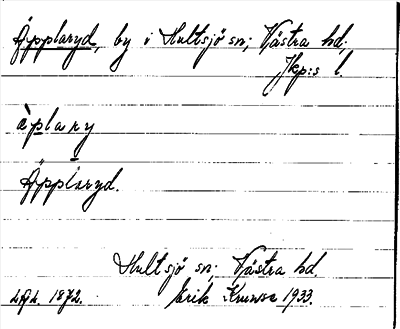 Äpplaryd, by i Hultsjö sn; Västra hd;
Jkp:s l.
äplary
Äpplaryd.
Hultsjö sn; Västra hd.
Erik Kruuse 1933.
1872.